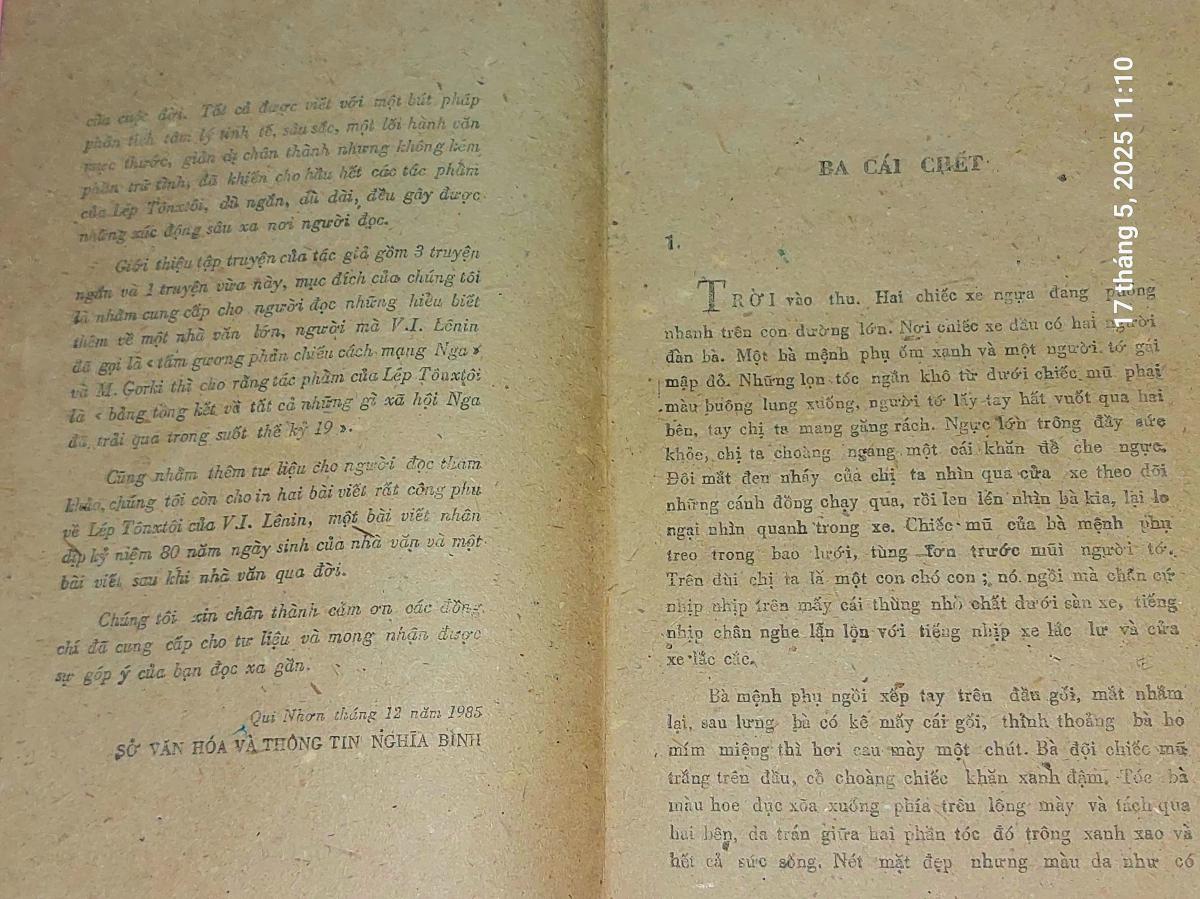 của cuộc đời. Tất cả được viết với một bút pháp
phân tích tâm lý tinh tế, sâu sắc, một lối hành văn
mực thước, giản dị chân thành nhưng không kém
phần trữ tình, đã khiến cho hầu hết các tác phẩm
của Lép Tônxtôi, dù ngắn, dù dài, đều gây được
những xúc động sâu xa nơi người đọc.
Giới thiệu tập truyện của tác giả gồm 3 truyện
ngắn và 1 truyện vừa này, mục đích của chúng tôi
là nhằm cung cấp cho người đọc những hiểu biết
thêm về một nhà văn lớn, người mà V.I. Lênin
đã gọi là « tấm gương phản chiếu cách mạng Nga »
và M. Gorki thì cho rằng tác phẩm của Lép Tônxtôi
là « bảng tổng kết về tất cả những gì xã hội Nga
đã trải qua trong suốt thế kỷ 19 ».
Cũng nhằm thêm tư liệu cho người đọc tham
khảo, chúng tôi còn cho in hai bài viết rất công phu
về Lép Tônxtôi của V.I. Lênin, một bài viết nhân
dịp kỷ niệm 80 năm ngày sinh của nhà văn và một
bài viết sau khi nhà văn qua đời.
Chúng tôi xin chân thành cảm ơn các đồng
chí đã cung cấp cho tư liệu và mong nhận được
sự góp ý của bạn đọc xa gần.
Qui Nhơn tháng 12 năm 1985
SỞ VĂN HÓA VÀ THÔNG TIN NGHĨA BÌNH
BA CÁI CHẾT
1.
TRỜI vào thu. Hai chiếc xe ngựa đang phóng
nhanh trên con đường lớn. Nơi chiếc xe đầu có hai người
đàn bà. Một bà mệnh phụ ốm xanh và một người tớ gái
mập đỏ. Những lọn tóc ngắn khô từ dưới chiếc mũ phai
màu buông lung xuống, người tớ lấy tay hất vuốt qua hai
bên, tay chị ta mang găng rách. Ngực lớn trông đầy sức
khỏe, chị ta choàng ngang một cái khăn để che ngực.
Đôi mắt đen nháy của chị ta nhìn qua cửa xe theo dõi
những cánh đồng chạy qua, rồi len lén nhìn bà kia, lại lo
ngại nhìn quanh trong xe. Chiếc mũ của bà mệnh phụ
treo trong bao lưới, tùng tơn trước mũi người tớ.
Trên đùi chị ta là một con chó con ; nó ngồi mà chân cứ
nhịp nhịp trên mấy cái thùng nhỏ chất dưới sàn xe, tiếng
nhịp chân nghe lẫn lộn với tiếng nhịp xe lắc lư và cửa
xe lắc cắc.
Bà mệnh phụ ngồi xếp tay trên đầu gối, mắt nhắm
lại, sau lưng bà có kê mấy cái gối, thỉnh thoảng bà ho
mím miệng thì hơi cau mày một chút. Bà đội chiếc mũ
trắng trên đầu, cổ choàng chiếc khăn xanh đậm. Tóc bà
màu hoe dục xõa xuống phía trên lông mày và tách qua
hai bên, da trán giữa hai phần tóc đó trông xanh xao và
hết cả sức sống. Nét mặt đẹp nhưng màu da như có
17 tháng 5, 2025 11:10